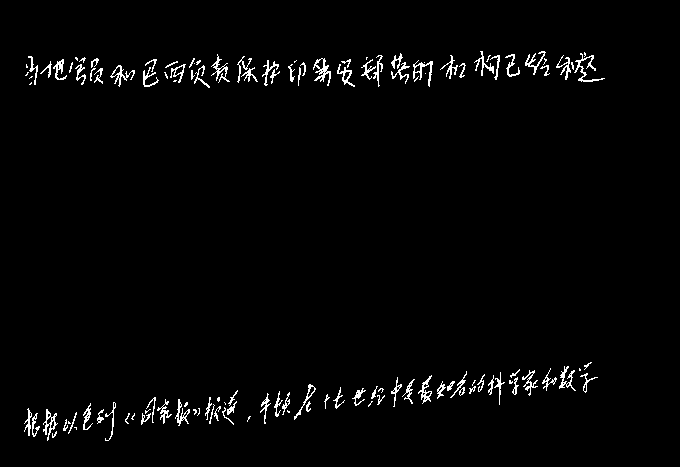 当地官员和巴西负责保护印第安部落的机构已经和这
根据以色列《国家报》报道，牛顿是十七世纪中是最知名的科学家和数学